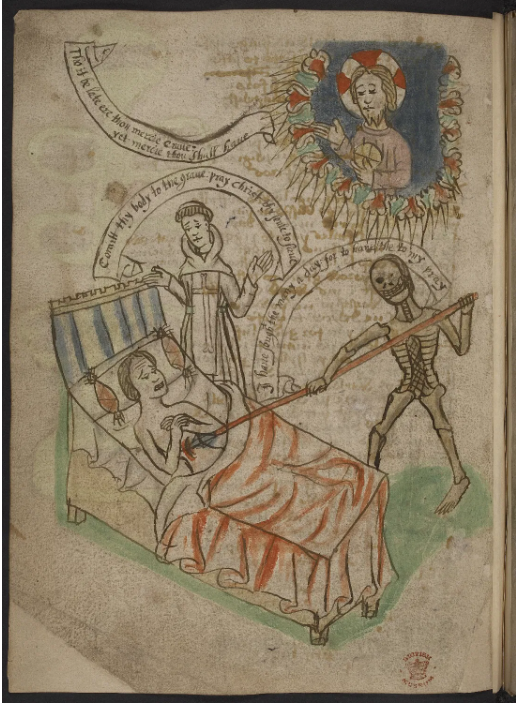 Tho it be late ere thou mercie craue:
yet mercie thou shalt haue
Comitt thy body to the graue: pray Christ thy soule to saue
I haue sought the many a day: for to haue the to my pray
MUSEUM